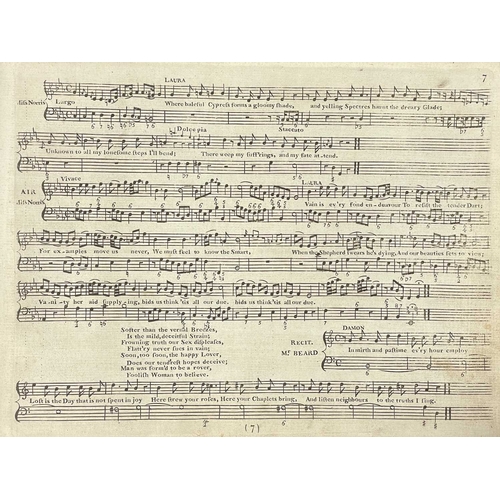 7
LAURA
Miss Norris Largo
Where baleful Cypress forms a gloomy shade, and yelling Spectres haunt the dreary Glade;
Dolce pia Staccato
Unknown to all my lonesome steps I'll bend; There weep my suff'rings, and my fate attend.
Vivace LAURA
AIR
Miss Norris
Vain is ev'ry fond endeavour To resist the tender Dart;
For examples move us never, We must feel to know the Smart; When the Shepherd swears he's dying, And our beauties sets to view;
Vanity her aid supplying, bids us think 'tis all our due. bids us think 'tis all our due.
Softer than the vernal Breezes,
Is the mild, deceitful Strain;
Frowning truth our Sex displeases,
Flatt'ry never sues in vain;
Soon, too soon, the happy Lover,
Does our tend'rest hopes deceive;
Man was form'd to be a rover,
Foolish Woman to believe.
RECIT. DAMON
Mr. BEARD
In mirth and pastime ev'ry hour employ
Lost is the Day that is not spent in joy Here strew your roses, Here your Chaplets bring, And listen neighbours to the truths I sing.
(7)